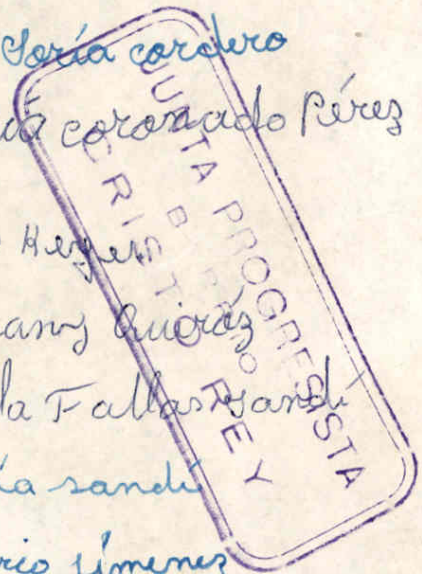 Soría cordero
coronado Pérez
Reyes
Quiróz
la Fallas sandí
ía sandí
rio jímenez
JUNTA PROGRESISTA
BARRIO
CRISTO REY